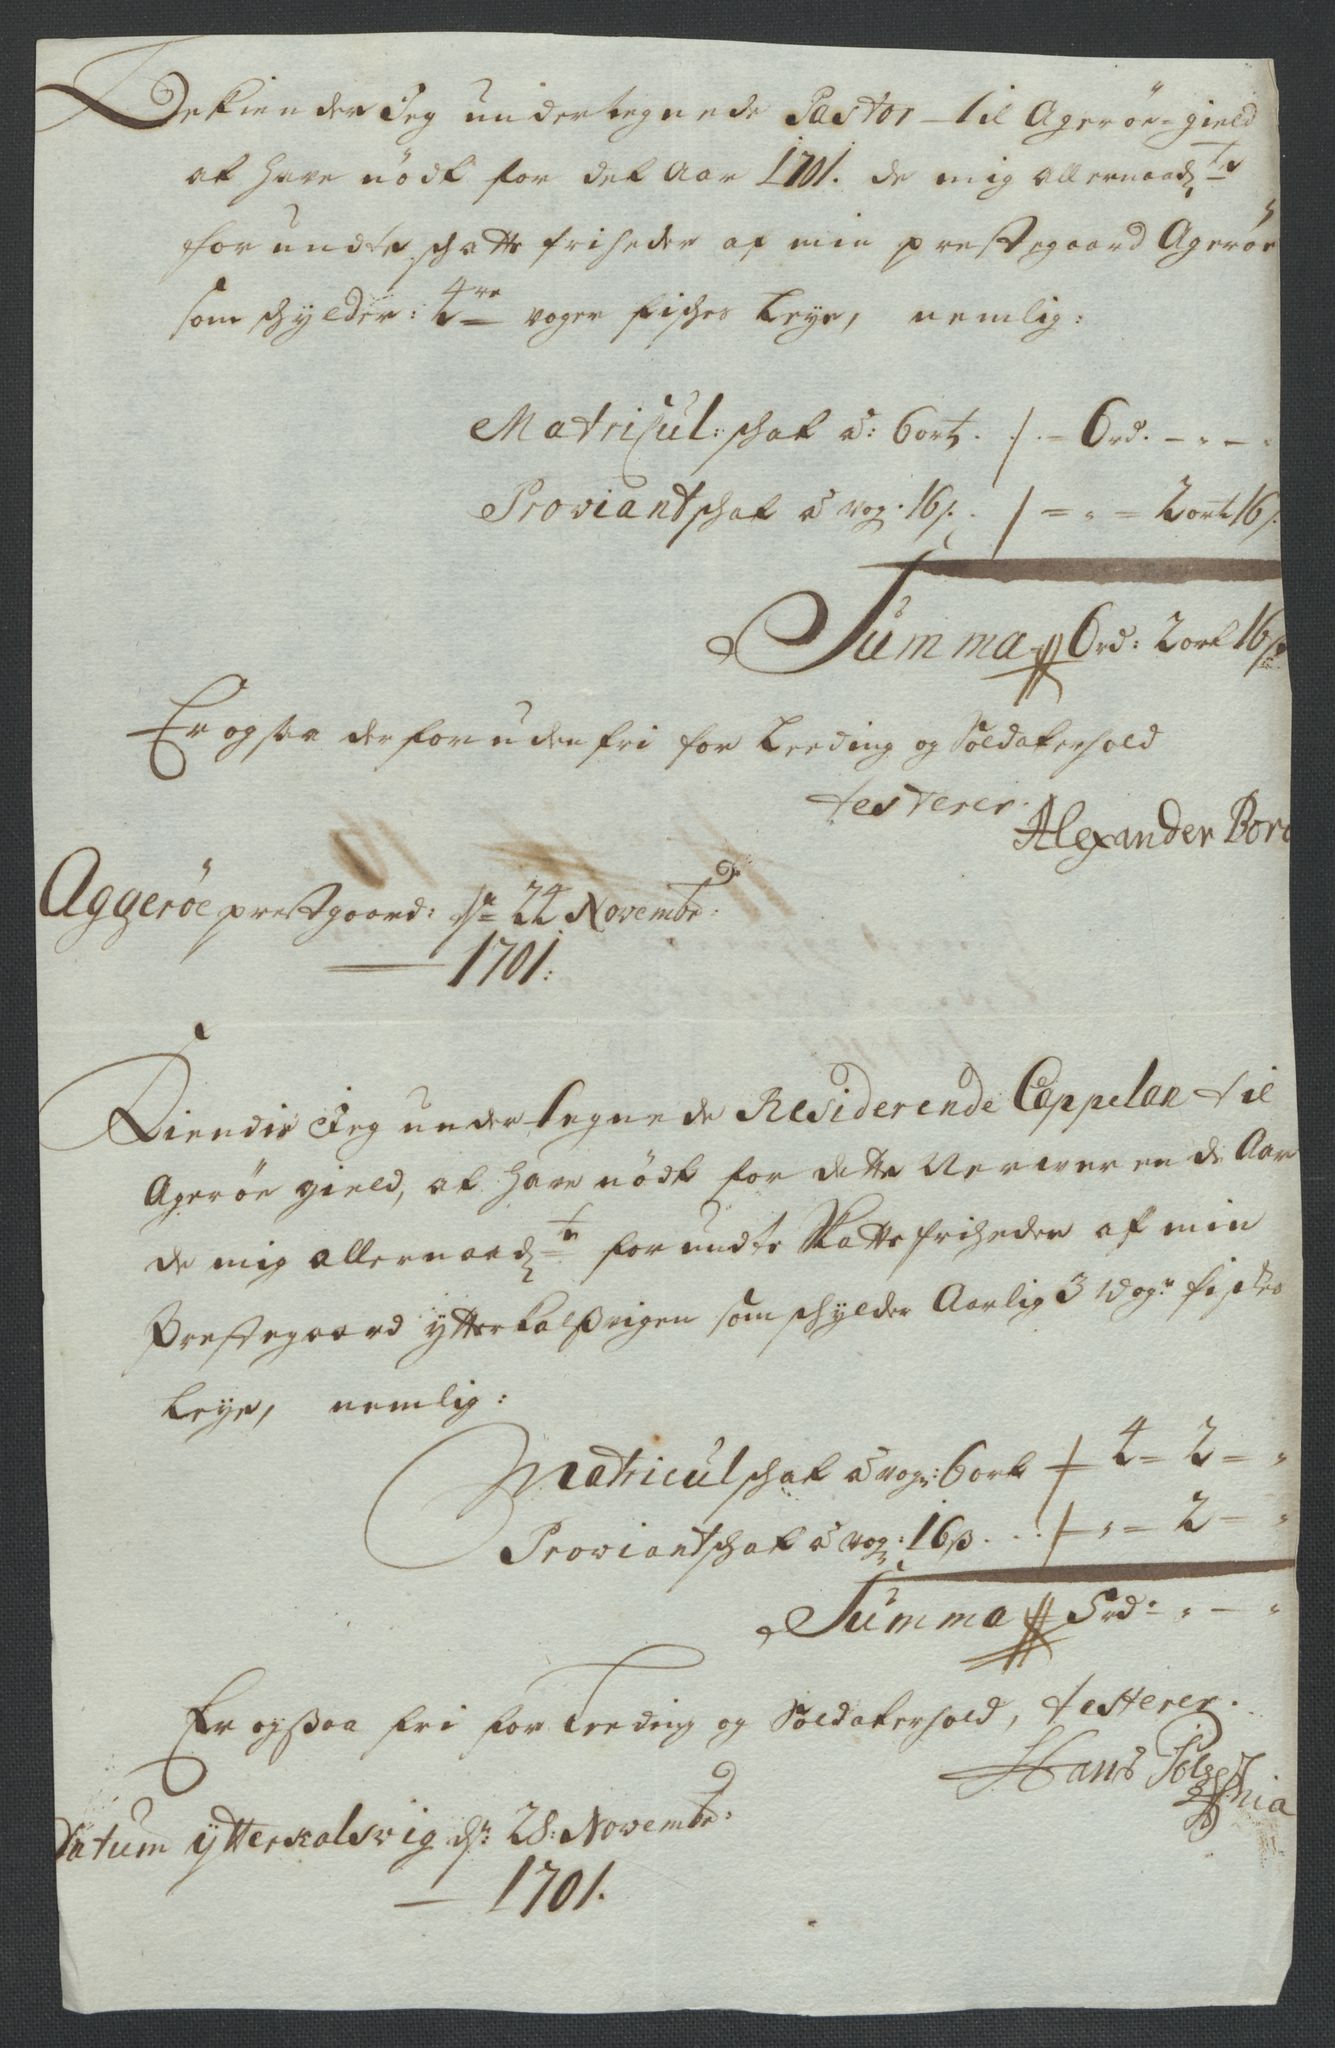 Bekiender Jeg undertegnede Pastor til Agerøe-gield
at have nödt for det Aar 1701. de mig allernaadste
forundte schatte friheder af min prestegaard Agerøe
som schylder: 4re woger fisches Leye, nemlig:
Matricul: schat à: 6 ort. . - 6 rd. - " - "
Proviantschat à wog: 16 s. - " - 2 ort 16 s.
Summa 6 rd: 2 ort 16 s
Er ogsaa derforuden fri for Leeding og Soldaterhold
testerer.
Alexander
Aggerøe prestgaard: dn 24 Novembr:
1701:
Kiendis Jeg undertegnede Residerende Cappelan til
Agerøe gield, at have nödt for dette Nerwerende Aar
de mig allernaadste forundte Skatte friheder af min
Prestegaard ytterkalswigen som schylder Aarlig 3 wogr fiskes
Leye, nemlig:
Matriculschat à wog: 6 ort - 4 - 2 - "
Proviantschat à wog: 16 s. . . - " - 2 - "
Summa 5 rd - " - "
Er ogsaa fri for Leeding og Soldaterhold, testerer.
Hans
Datum ytterkalsvig dn: 28: Novembr:
1701.